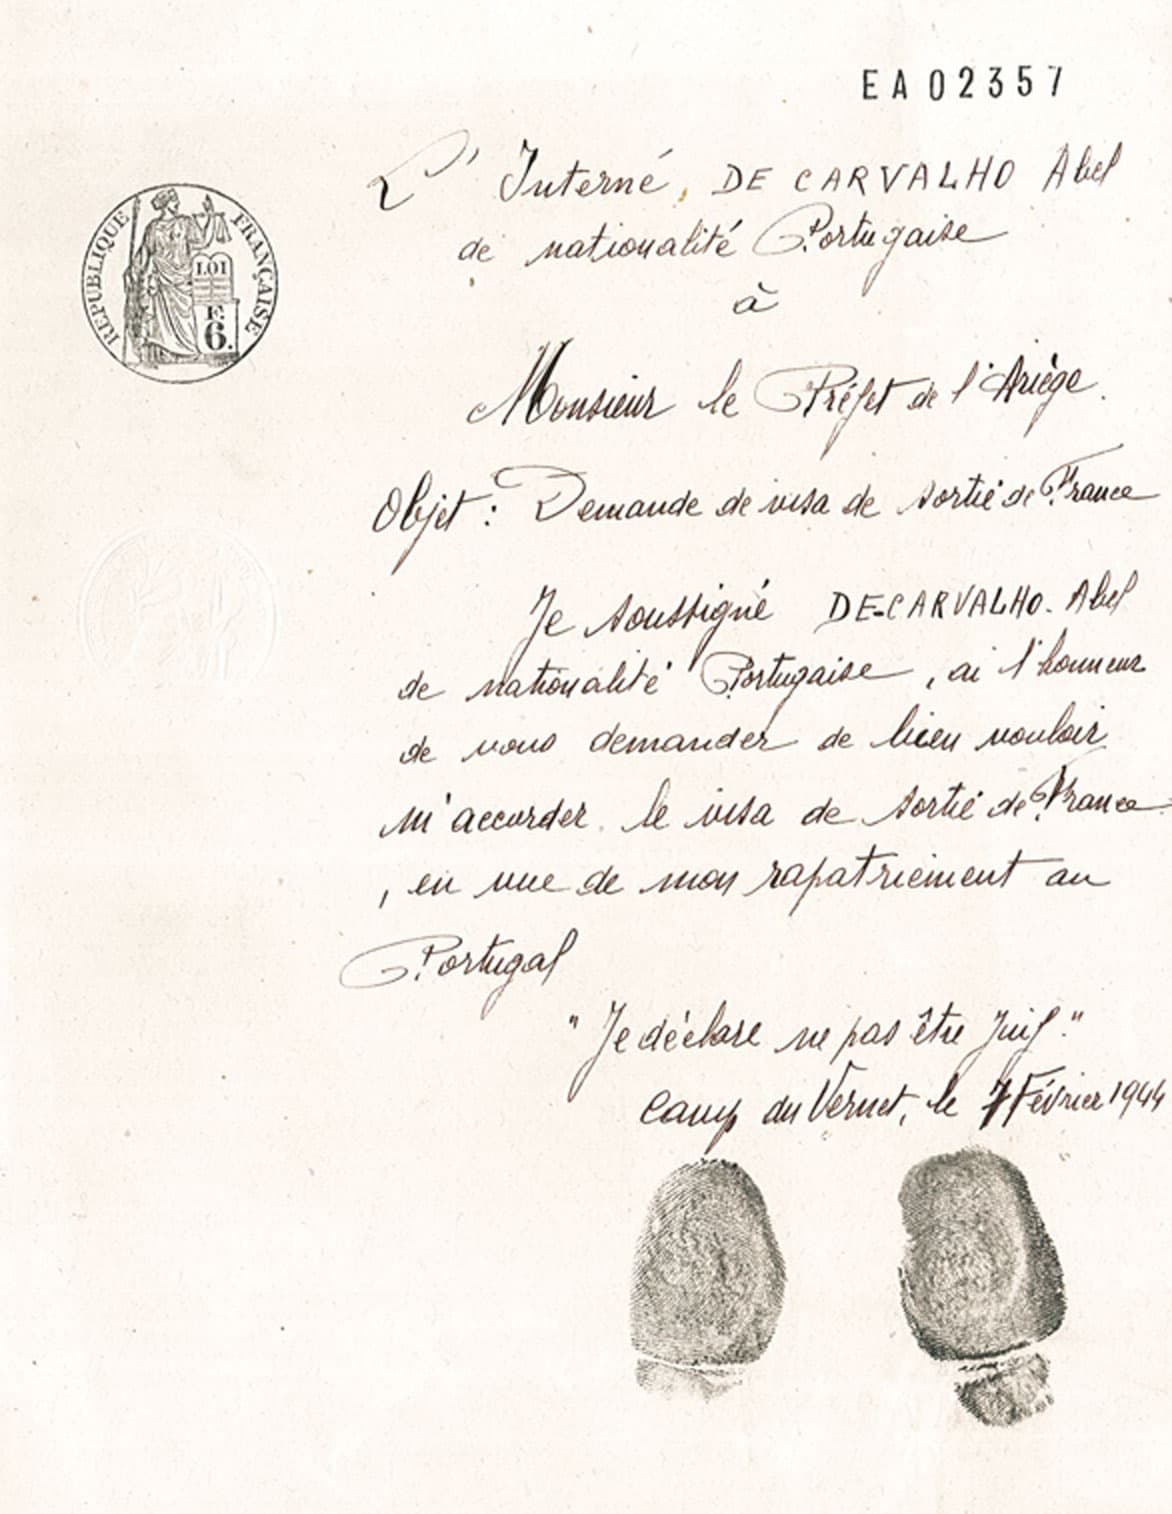 EA02357
RÉPUBLIQUE FRANÇAISE
LOI
F.
6.
L' Interné, DE CARVALHO Abel
de nationalité Portugaise
à
Monsieur le Préfet de l'Ariège.
Objet : Demande de visa de sortie de France
Je soussigné DE-CARVALHO. Abel
de nationalité Portugaise, ai l'honneur
de vous demander de bien vouloir
m'accorder le visa de sortie de France
, en vue de mon rapatriement au
Portugal
"Je déclare ne pas être Juif."
Camp du Vernet, le 7 Février 1944